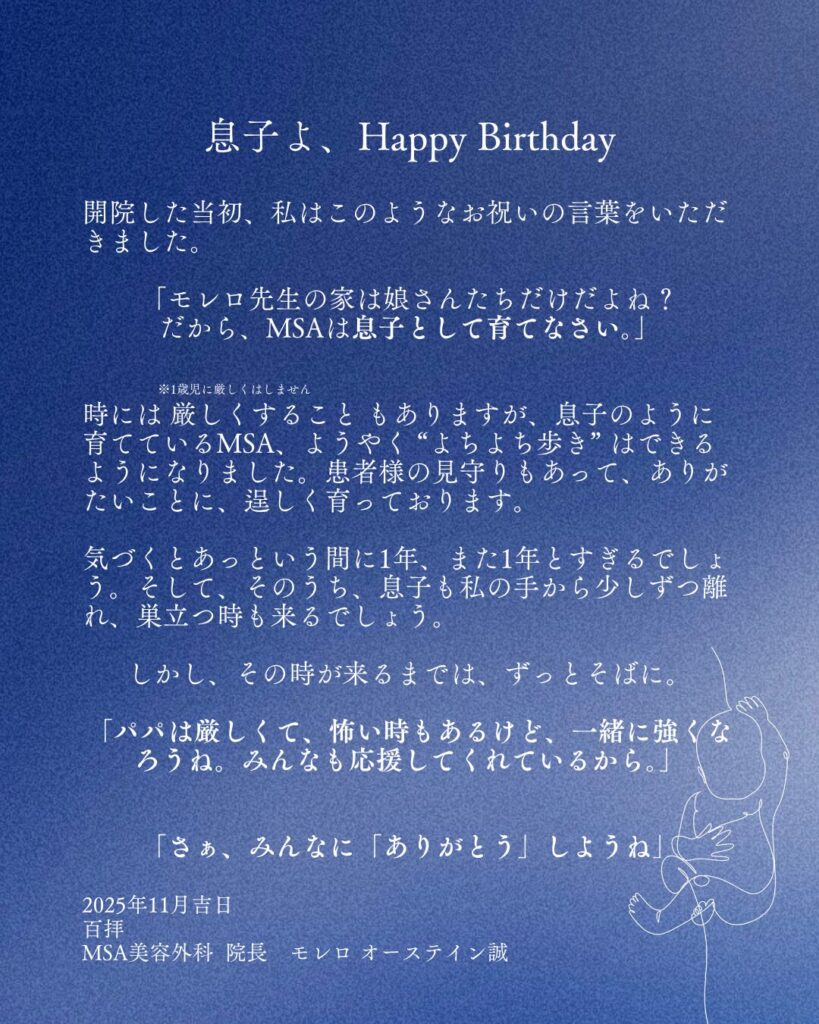 息子よ、Happy Birthday
開院した当初、私はこのようなお祝いの言葉をいただ
きました。
「モレロ先生の家は娘さんたちだけだよね？
だから、MSAは息子として育てなさい。」
※1歳児に厳しくはしません
時には 厳しくすること もありますが、息子のように
育てているMSA、ようやく “よちよち歩き” はできる
ようになりました。患者様の見守りもあって、ありが
たいことに、逞しく育っております。
気づくとあっという間に1年、また1年とすぎるでしょ
う。そして、そのうち、息子も私の手から少しずつ離
れ、巣立つ時も来るでしょう。
しかし、その時が来るまでは、ずっとそばに。
「パパは厳しくて、怖い時もあるけど、一緒に強くな
ろうね。みんなも応援してくれているから。」
「さぁ、みんなに「ありがとう」しようね」
2025年11月吉日
百拝
MSA美容外科 院長　モレロ オーステイン誠